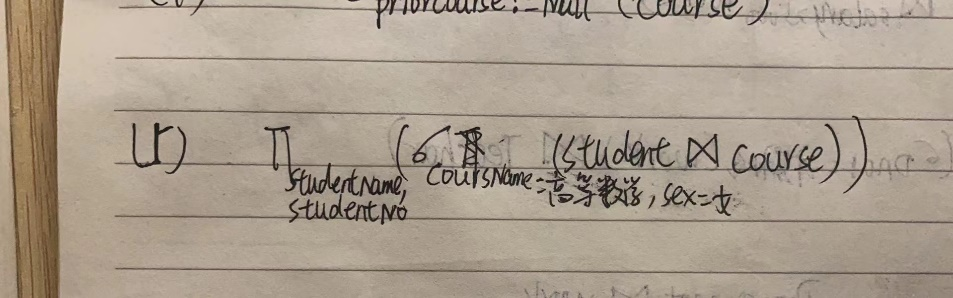 priorCourse!=Null (Course)
(r) Π studentName, studentNo (σ coursName=高等数学, sex=女 (student ⋈ course))